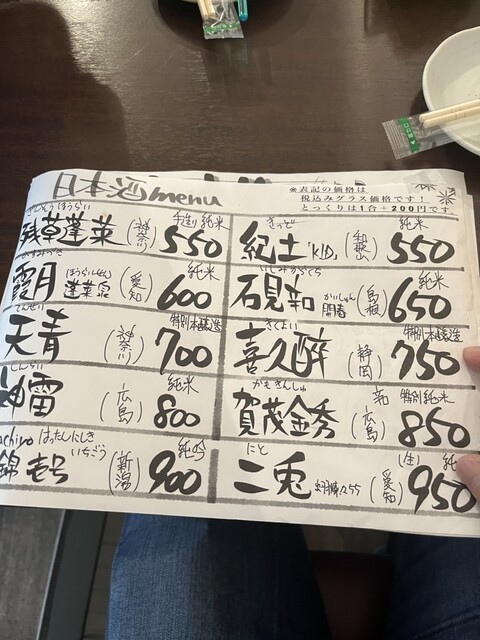 日本酒menu
※表記の価格は
税込みグラス価格です!
とっくりは1合+200円です
ざんそうほうらい
残草蓬莱 (神奈川) 純米 550
きっど
紀土 "KID" (和歌山) 純米 550
かすみづき
霞月 ほうらいせん 蓬莱泉 (愛知) 純米 600
いしみかわら
石見 かいしゅん 開春 (島根) 純米 650
てんせい
天青 (神奈川) 特別本醸造 700
きくよい
喜久醉 (静岡) 特別本醸造 750
しんらい
神雷 (広島) 純米 800
かもきんしゅう
賀茂金秀 (広島) 特別純米 850
achiyo はったんにしき いちごう
錦壱号 (新潟) 純吟 900
にと
二兎 (愛知) (生) 純 950